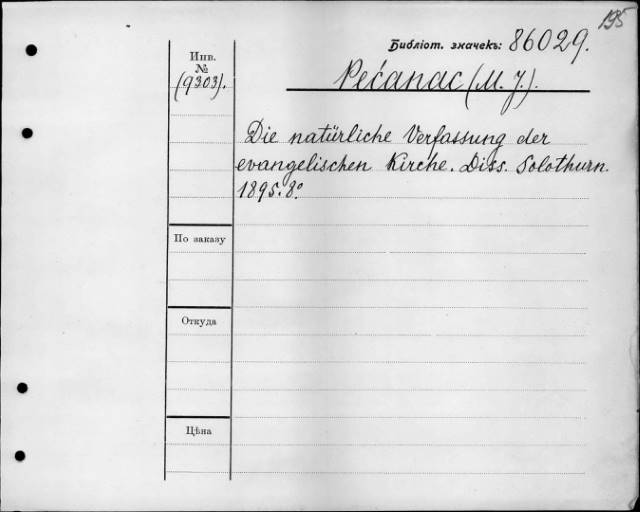 195
Библіот. значекъ: 86029.
Инв.
№
(9303).
Pećanac (M. J.).
Die natürliche Verfassung der
evangelischen Kirche. Diss. Solothurn.
1895. 8°.
По заказу
Откуда
Цѣна